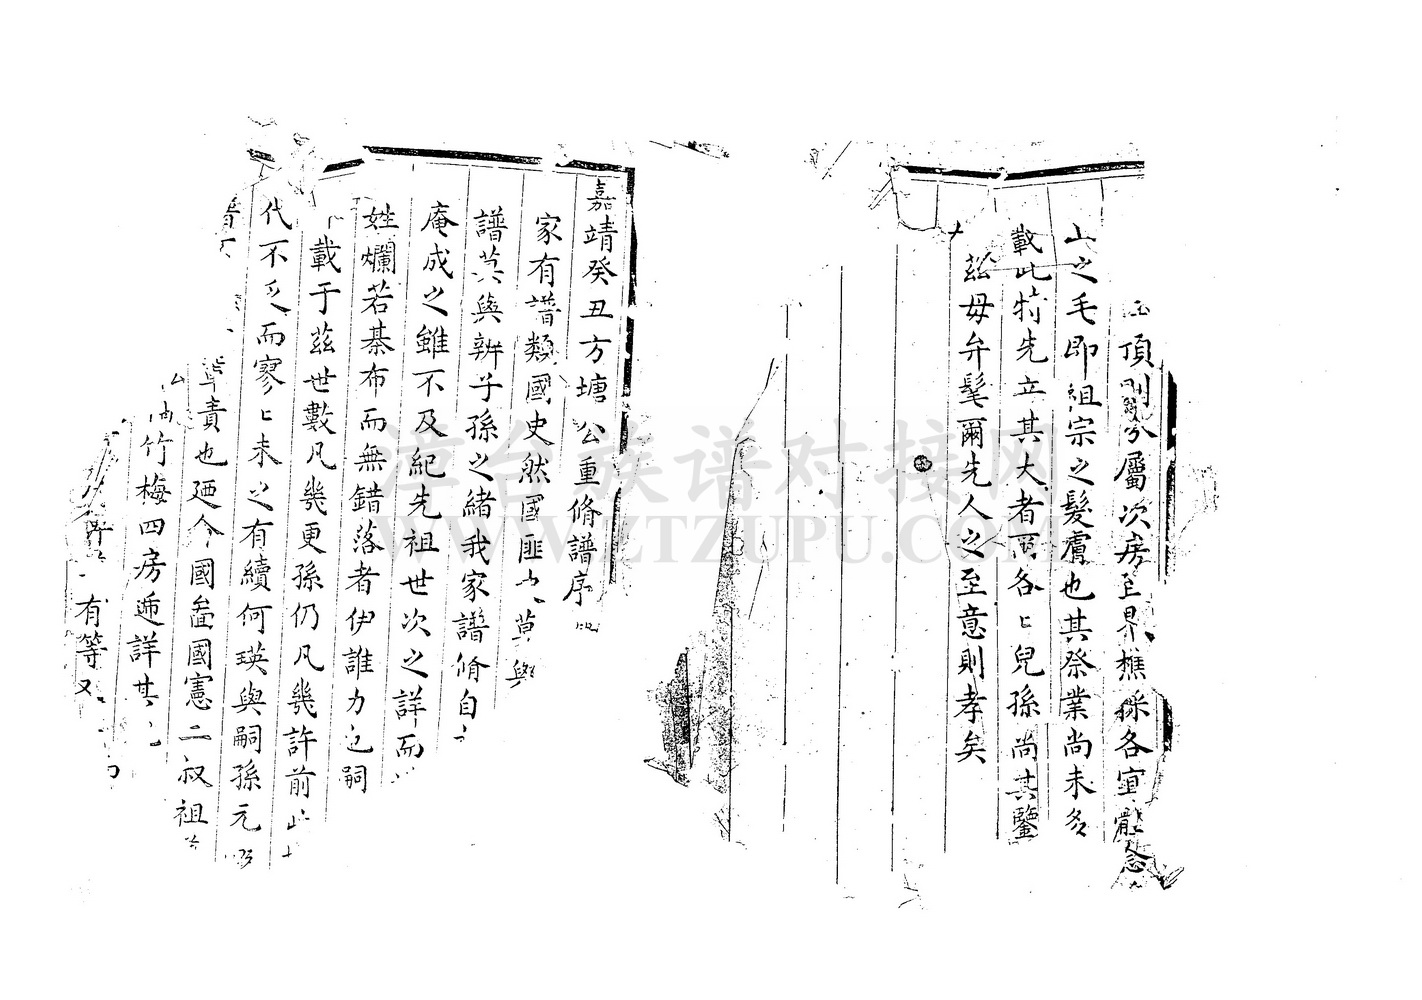 頂則分屬次房至界樵採各宜體念
山之毛即祖宗之髮膚也其祭業尚未多
載此特先立其大者而各〻兒孫尚其鑒
茲毋弁髦爾先人之至意則孝矣
嘉靖癸丑方塘公重脩譜序
家有譜類國史然國匪史莫與
譜莫與辨子孫之緒我家譜脩自
庵成之雖不及紀先祖世次之詳而
姓爛若棊布而無錯落者伊誰力也嗣
載于茲世數凡幾更孫仍凡幾許前此
代不乏而寥〻未之有續何瑛與嗣孫元
責也廼今國盉國憲二叔祖
竹梅四房遞詳其
有等又
港台族谱对接网
WWW.ZTZUPU.COM